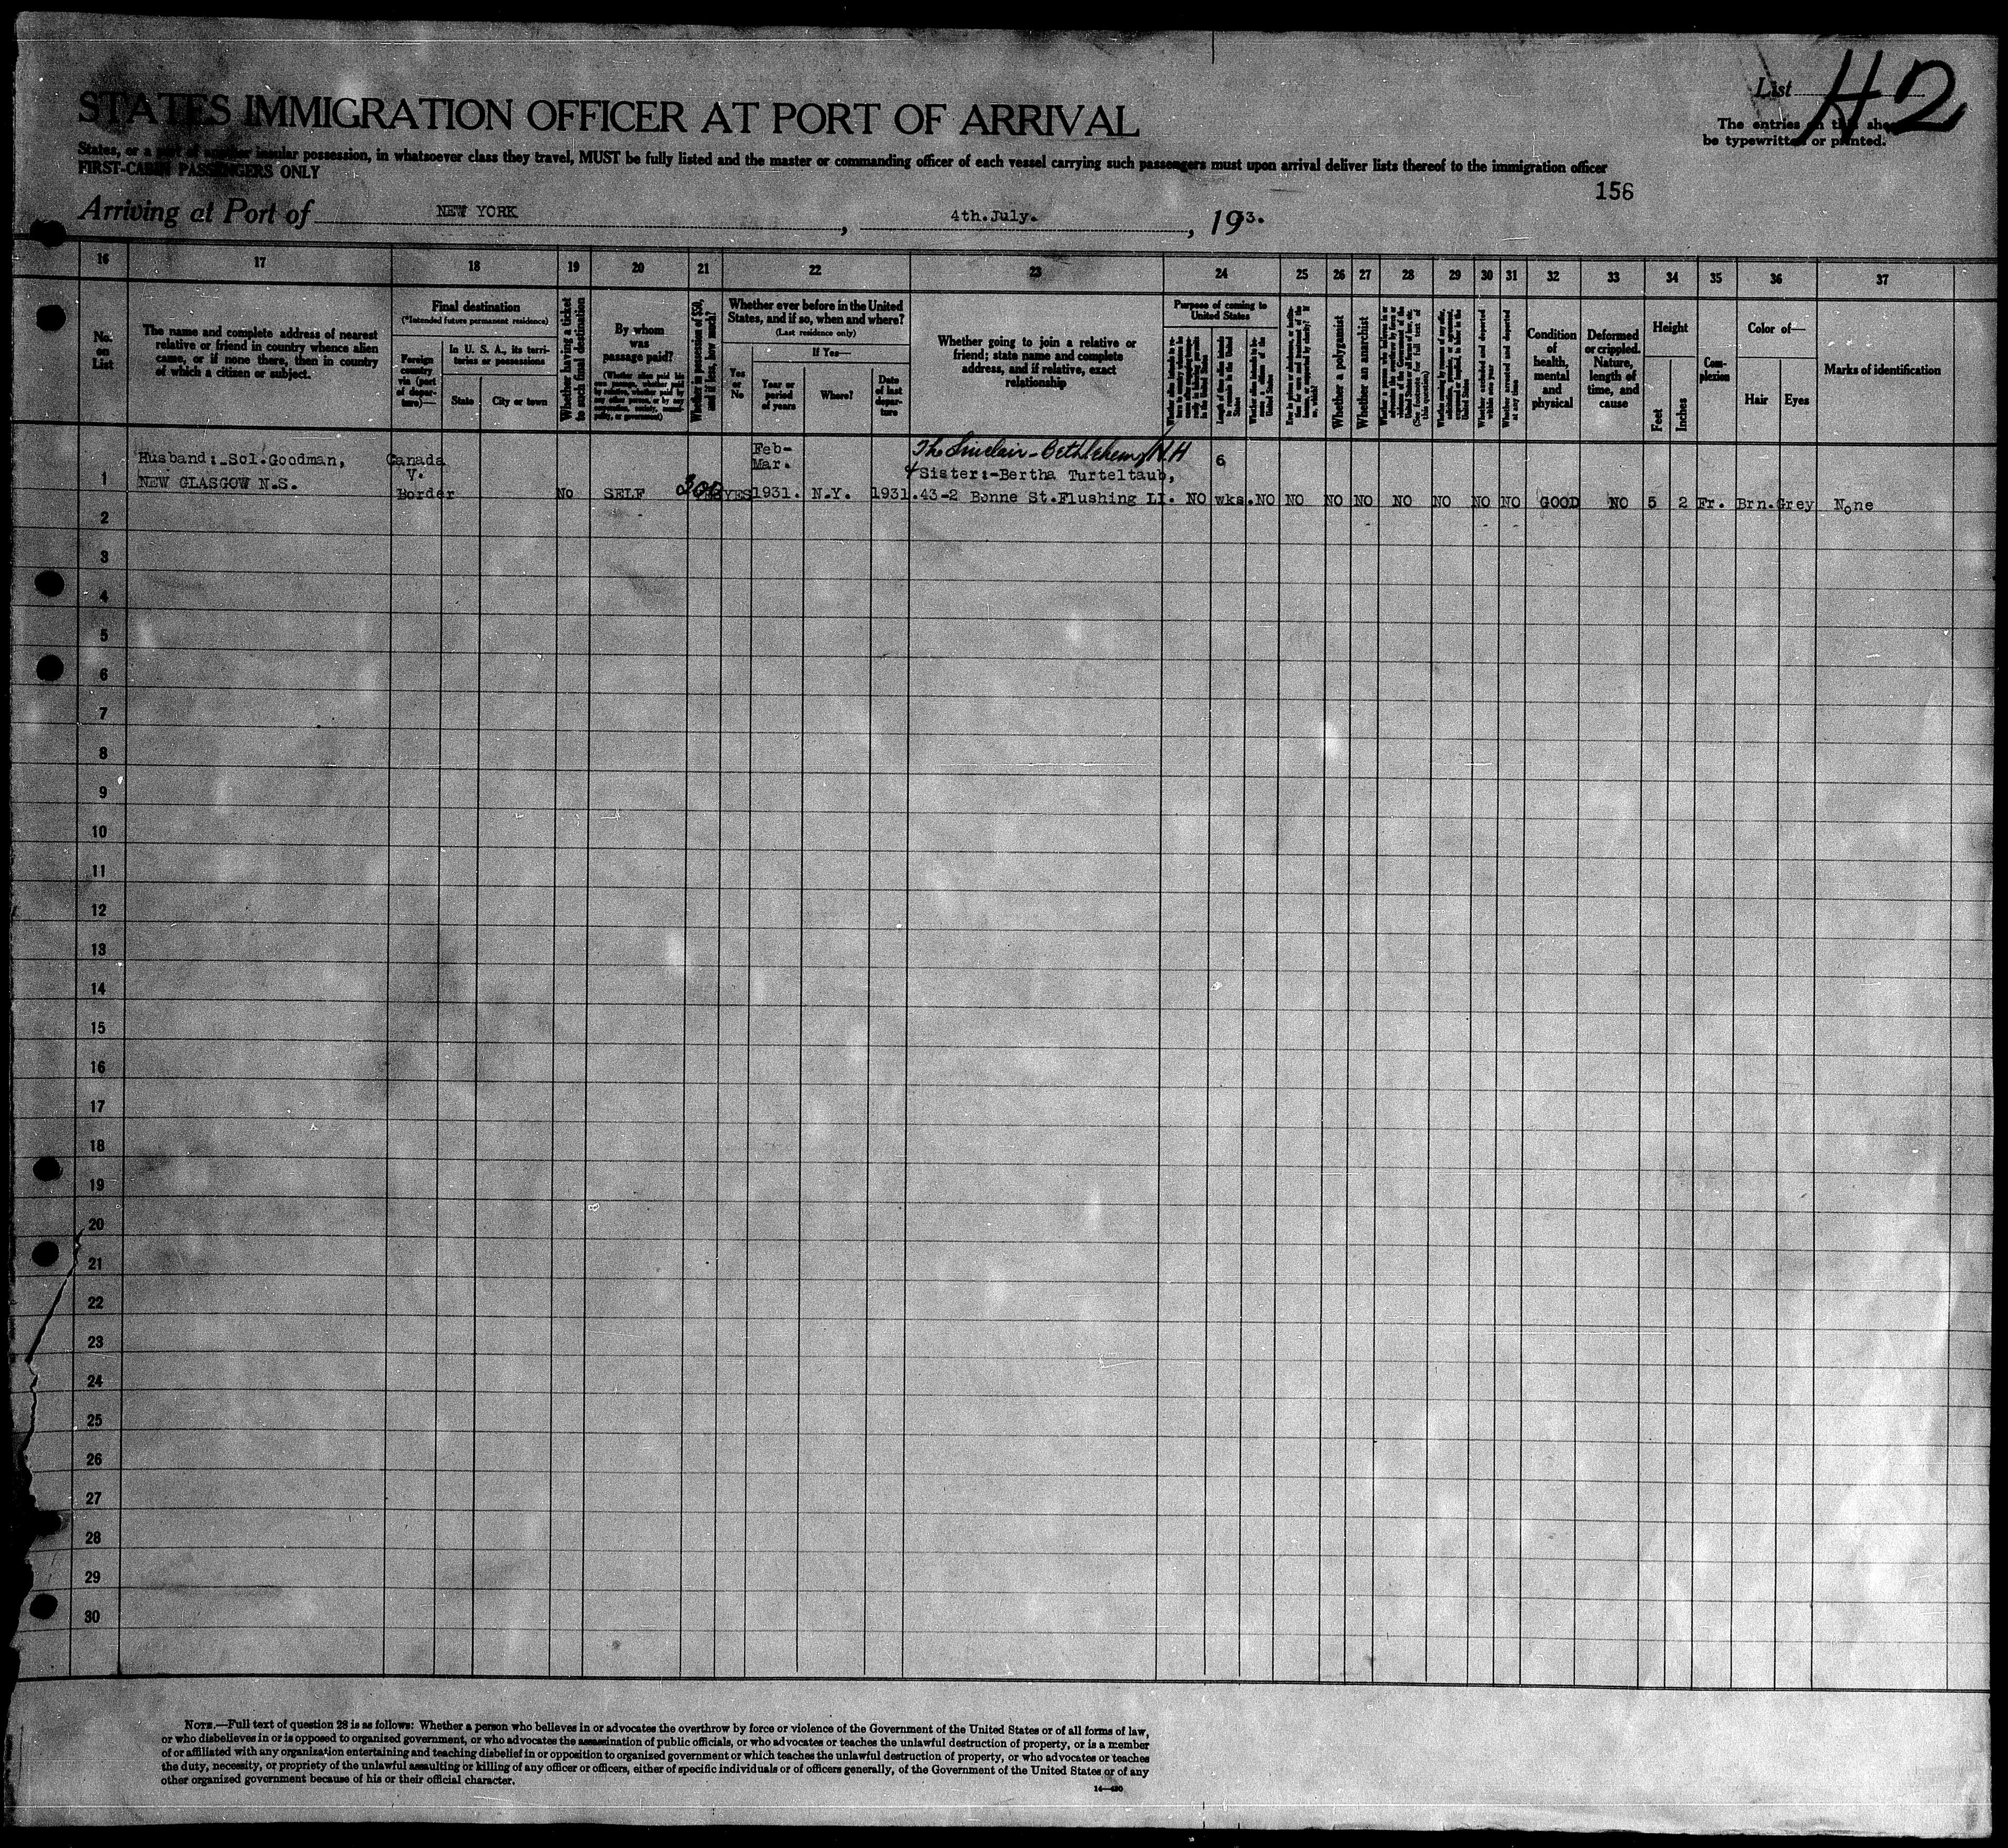 List H2
The entries on this sheet
be typewritten or printed.
STATES IMMIGRATION OFFICER AT PORT OF ARRIVAL
States, or a part of another insular possession, in whatsoever class they travel, MUST be fully listed and the master or commanding officer of each vessel carrying such passengers must upon arrival deliver lists thereof to the immigration officer
FIRST-CABIN PASSENGERS ONLY
156
Arriving at Port of NEW YORK, 4th.July., 193.
16 17 18 19 20 21 22 23 24 25 26 27 28 29 30 31 32 33 34 35 36 37
No. on List
The name and complete address of nearest
relative or friend in country whence alien
came, or if none there, then in country
of which a citizen or subject.
Final destination
(*Intended future permanent residence)
Foreign country via (port of departure)—
In U. S. A., its territories or possessions
State
City or town
Whether having a ticket to such final destination
By whom was passage paid?
Whether in possession of $50, and if less, how much?
Whether ever before in the United
States, and if so, when and where?
(Last residence only)
Yes or No
If Yes—
Year or period of years
Where?
Date of last departure
Whether going to join a relative or
friend; state name and complete
address, and if relative, exact
relationship
Purpose of coming to
United States
Whether a polygamist
Whether an anarchist
Whether excluded and deported within one year
Whether arrested and deported at any time
Condition of health, mental and physical
Deformed or crippled. Nature, length of time, and cause
Height
Feet
Inches
Complexion
Color of—
Hair
Eyes
Marks of identification
1
Husband:-Sol.Goodman,
NEW GLASGOW N.S.
Canada
V.
Border
No
SELF
300
YES
Feb-
Mar.
1931.
N.Y.
1931.
The Sinclair-Bethlehem, N.H
& Sister:-Bertha Turteltaub,
43-2 Bonne St.Flushing LI.
NO
6
wks.
NO
NO
NO
NO
NO
NO
NO
NO
GOOD
NO
5
2
Fr.
Brn.
Grey
None
2
3
4
5
6
7
8
9
10
11
12
13
14
15
16
17
18
19
20
21
22
23
24
25
26
27
28
29
30
NOTE.—Full text of question 28 is as follows: Whether a person who believes in or advocates the overthrow by force or violence of the Government of the United States or of all forms of law,
or who disbelieves in or is opposed to organized government, or who advocates the assassination of public officials, or who advocates or teaches the unlawful destruction of property, or is a member
of or affiliated with any organization entertaining and teaching disbelief in or opposition to organized government or which teaches the unlawful destruction of property, or who advocates or teaches
the duty, necessity, or propriety of the unlawful assaulting or killing of any officer or officers, either of specific individuals or of officers generally, of the Government of the United States or of any
other organized government because of his or their official character.
14—430